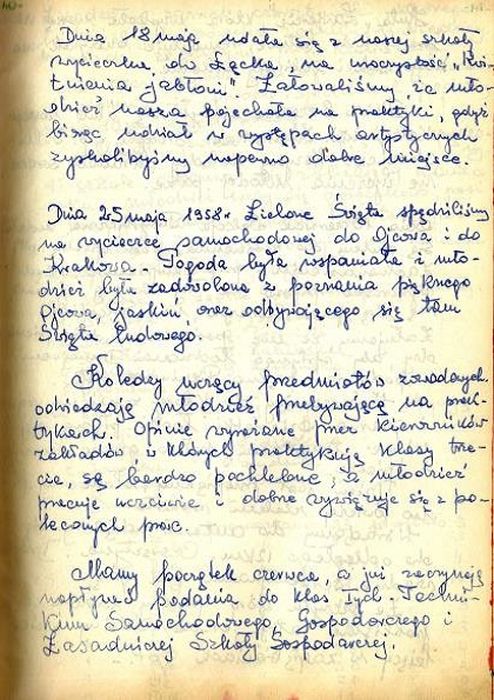 Dnia 18 maja udała się z naszej szkoły
wycieczka do Łącka, na uroczystość „Kwi-
tnienia jabłoni". Żałowaliśmy, że mło-
dzież nasza pojechała na praktyki, gdyż
biorąc udział w występach artystycznych
zyskalibyśmy napewno dobre miejsce.
Dnia 25 maja 1958r Zielone Święta spędziliśmy
na wycieczce samochodowej do Ojcowa i do
Krakowa. Pogoda była wspaniała i mło-
dzież była zadowolona z poznania pięknego
Ojcowa, jaskiń, oraz odbywającego się tam
Święta Ludowego.
Koledzy uczący przedmiotów zawodowych
odwiedzają młodzież przebywającą na prak-
tykach. Opinie wyrażane przez kierowników
zakładów w których praktykują klasy trze-
cie, są bardzo pochlebne, a młodzież
pracuje uczciwie i dobrze wywiązuje się z po-
leconych prac.
Mamy początek czerwca, a już zaczynają
napływać podania do klas Iych. Techni-
kum Samochodowego, Gospodarczego i
Zasadniczej Szkoły Gospodarczej.